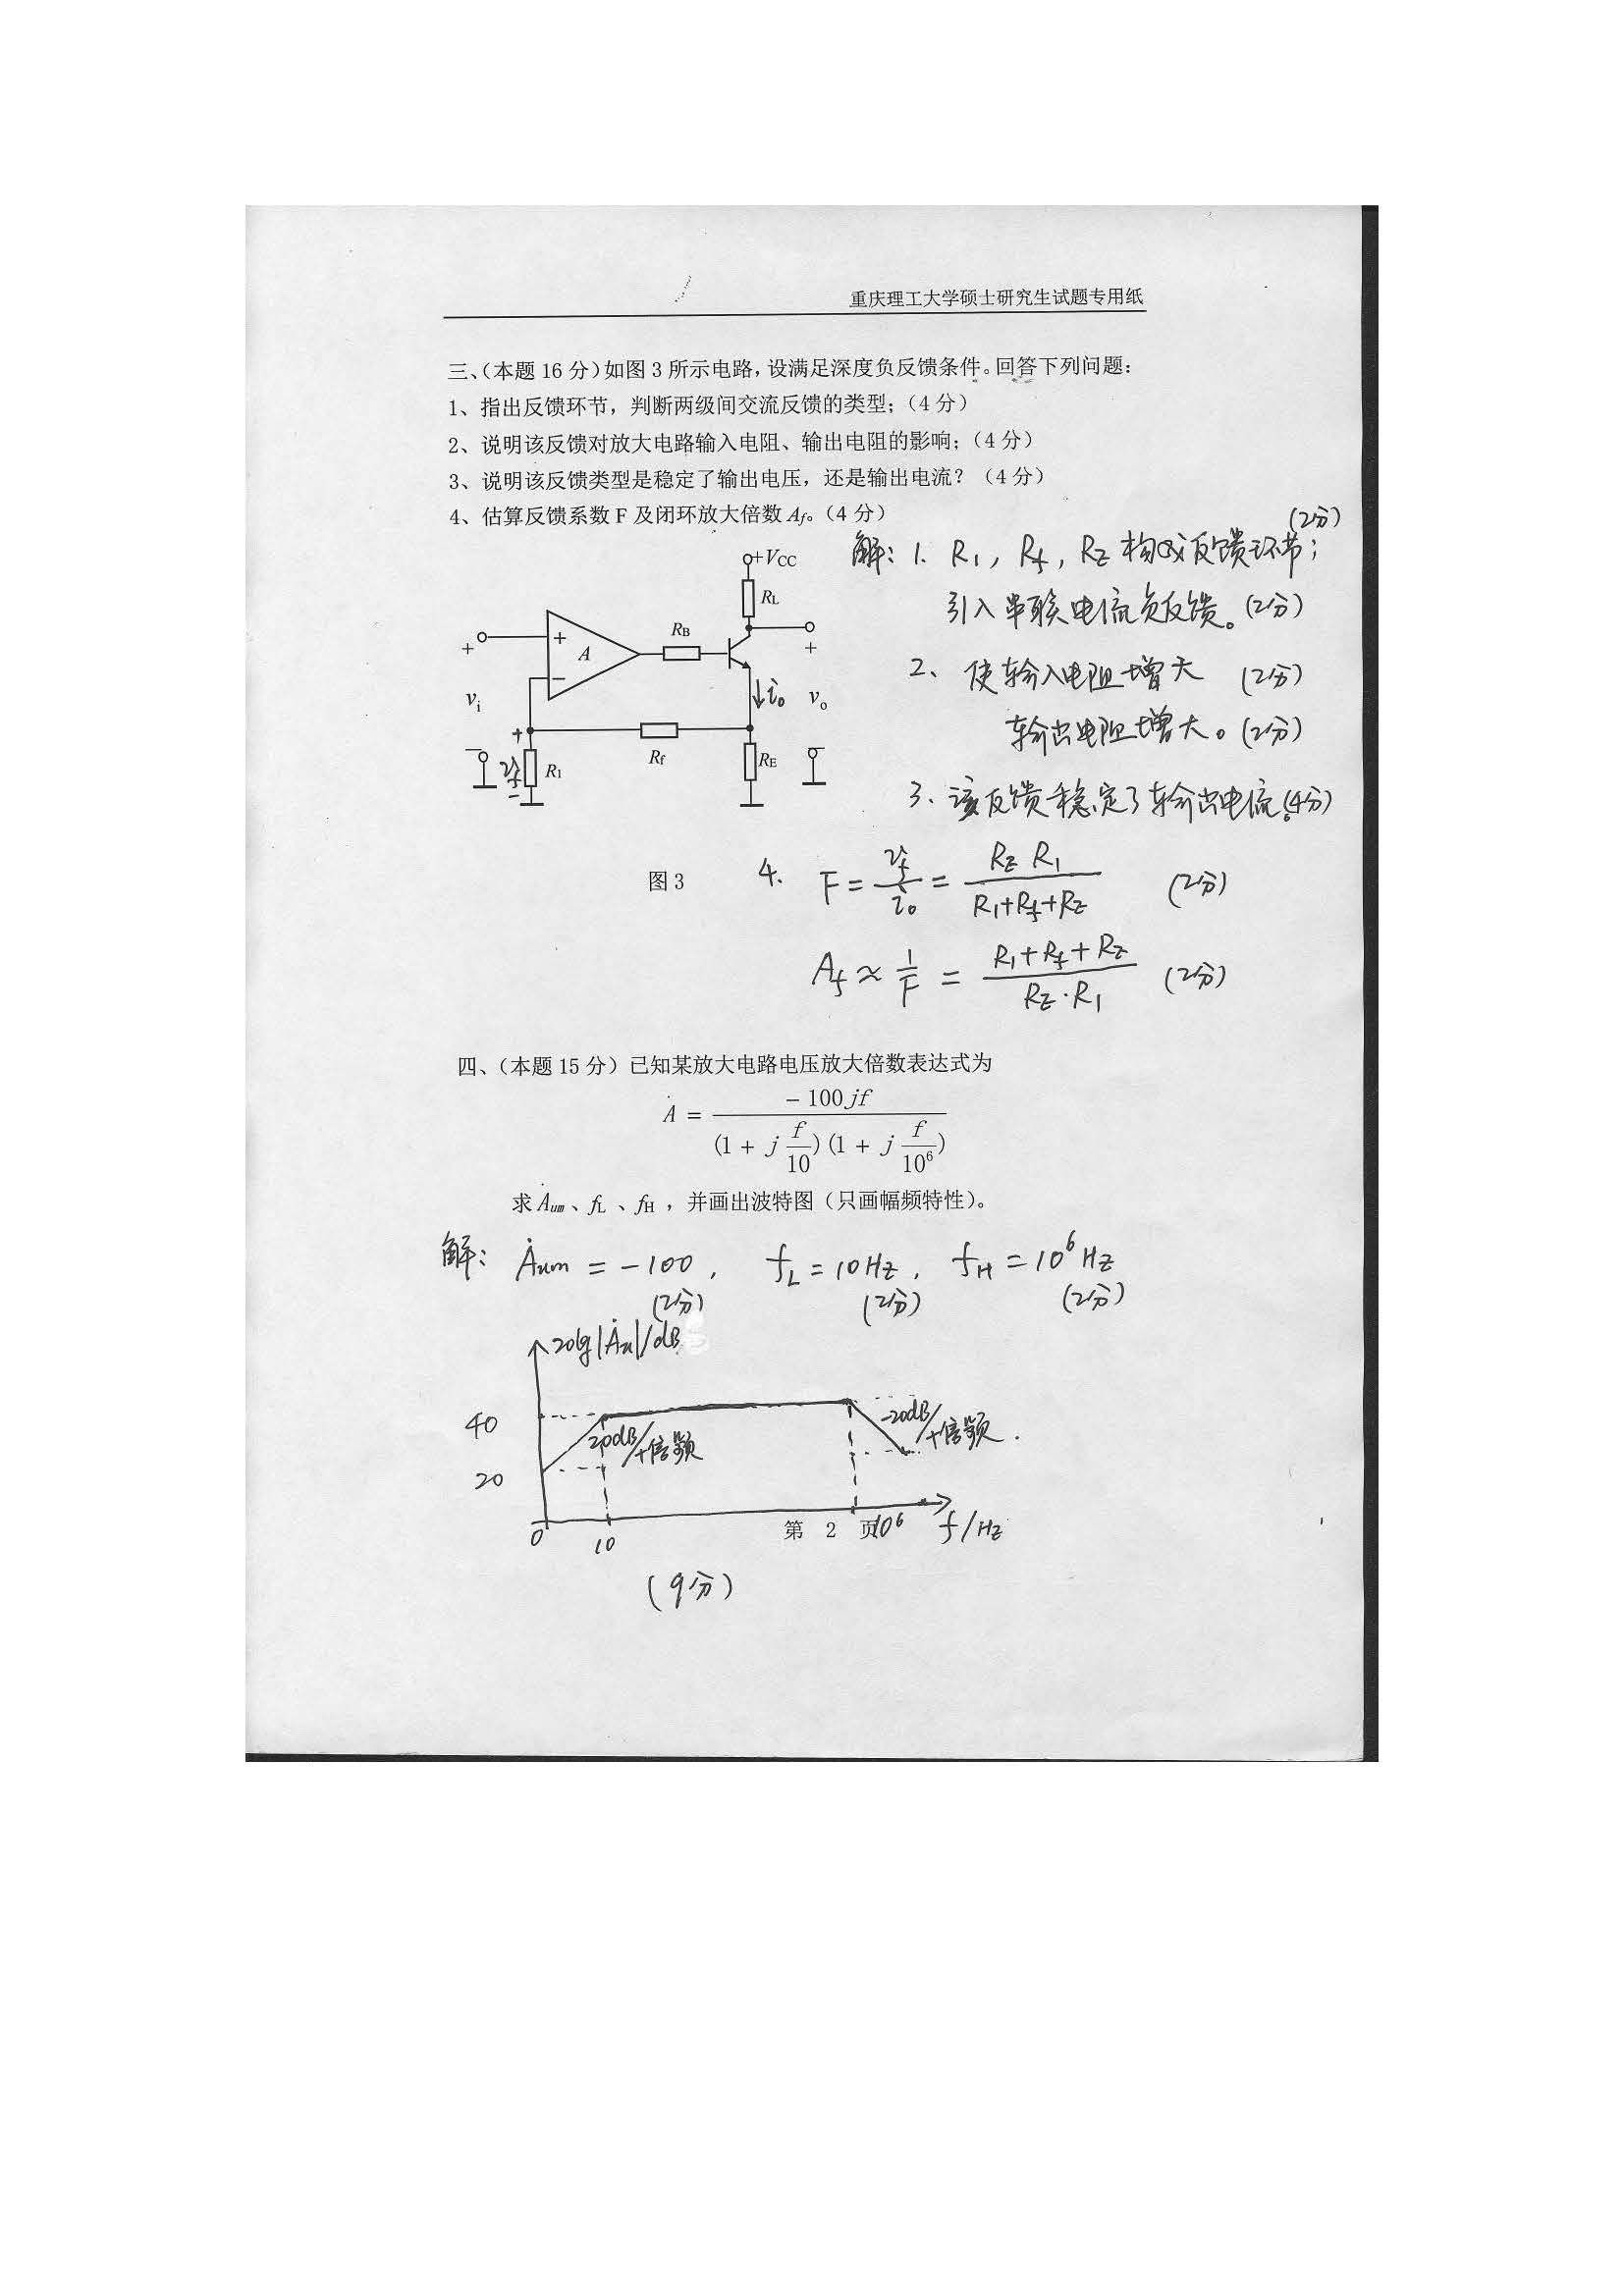 重庆理工大学硕士研究生试题专用纸
三、(本题 16 分)如图 3 所示电路,设满足深度负反馈条件。回答下列问题:
1、指出反馈环节,判断两级间交流反馈的类型;(4 分)
2、说明该反馈对放大电路输入电阻、输出电阻的影响;(4 分)
3、说明该反馈类型是稳定了输出电压,还是输出电流?(4 分)
4、估算反馈系数 F 及闭环放大倍数 Af。(4 分)
解: 1. R1, Rf, RE 构成反馈环节; (2分)
引入串联电流负反馈。(2分)
2、 使输入电阻增大 (2分)
输出电阻增大。(2分)
3、该反馈稳定了输出电流。(4分)
+VCC
RL
RB
+
A
−
+
+
vi
io
vo
+
−
vf
−
R1
Rf
RE
−
图 3
4. F = vf/io = RE R1/(R1+Rf+RE) (2分)
Af ≈ 1/F = (R1+Rf+RE)/(RE·R1) (2分)
四、(本题 15 分)已知某放大电路电压放大倍数表达式为
Ȧ = −100jf / ((1 + j f/10)(1 + j f/10⁶))
求 Ȧum、fL 、fH ,并画出波特图(只画幅频特性)。
解: Ȧum = −100, fL = 10Hz, fH = 10⁶Hz
(2分) (2分) (2分)
20lg|Ȧu|/dB
40
20dB/十倍频
-20dB/十倍频.
20
0
10
10⁶
f/Hz
第 2 页
(9分)